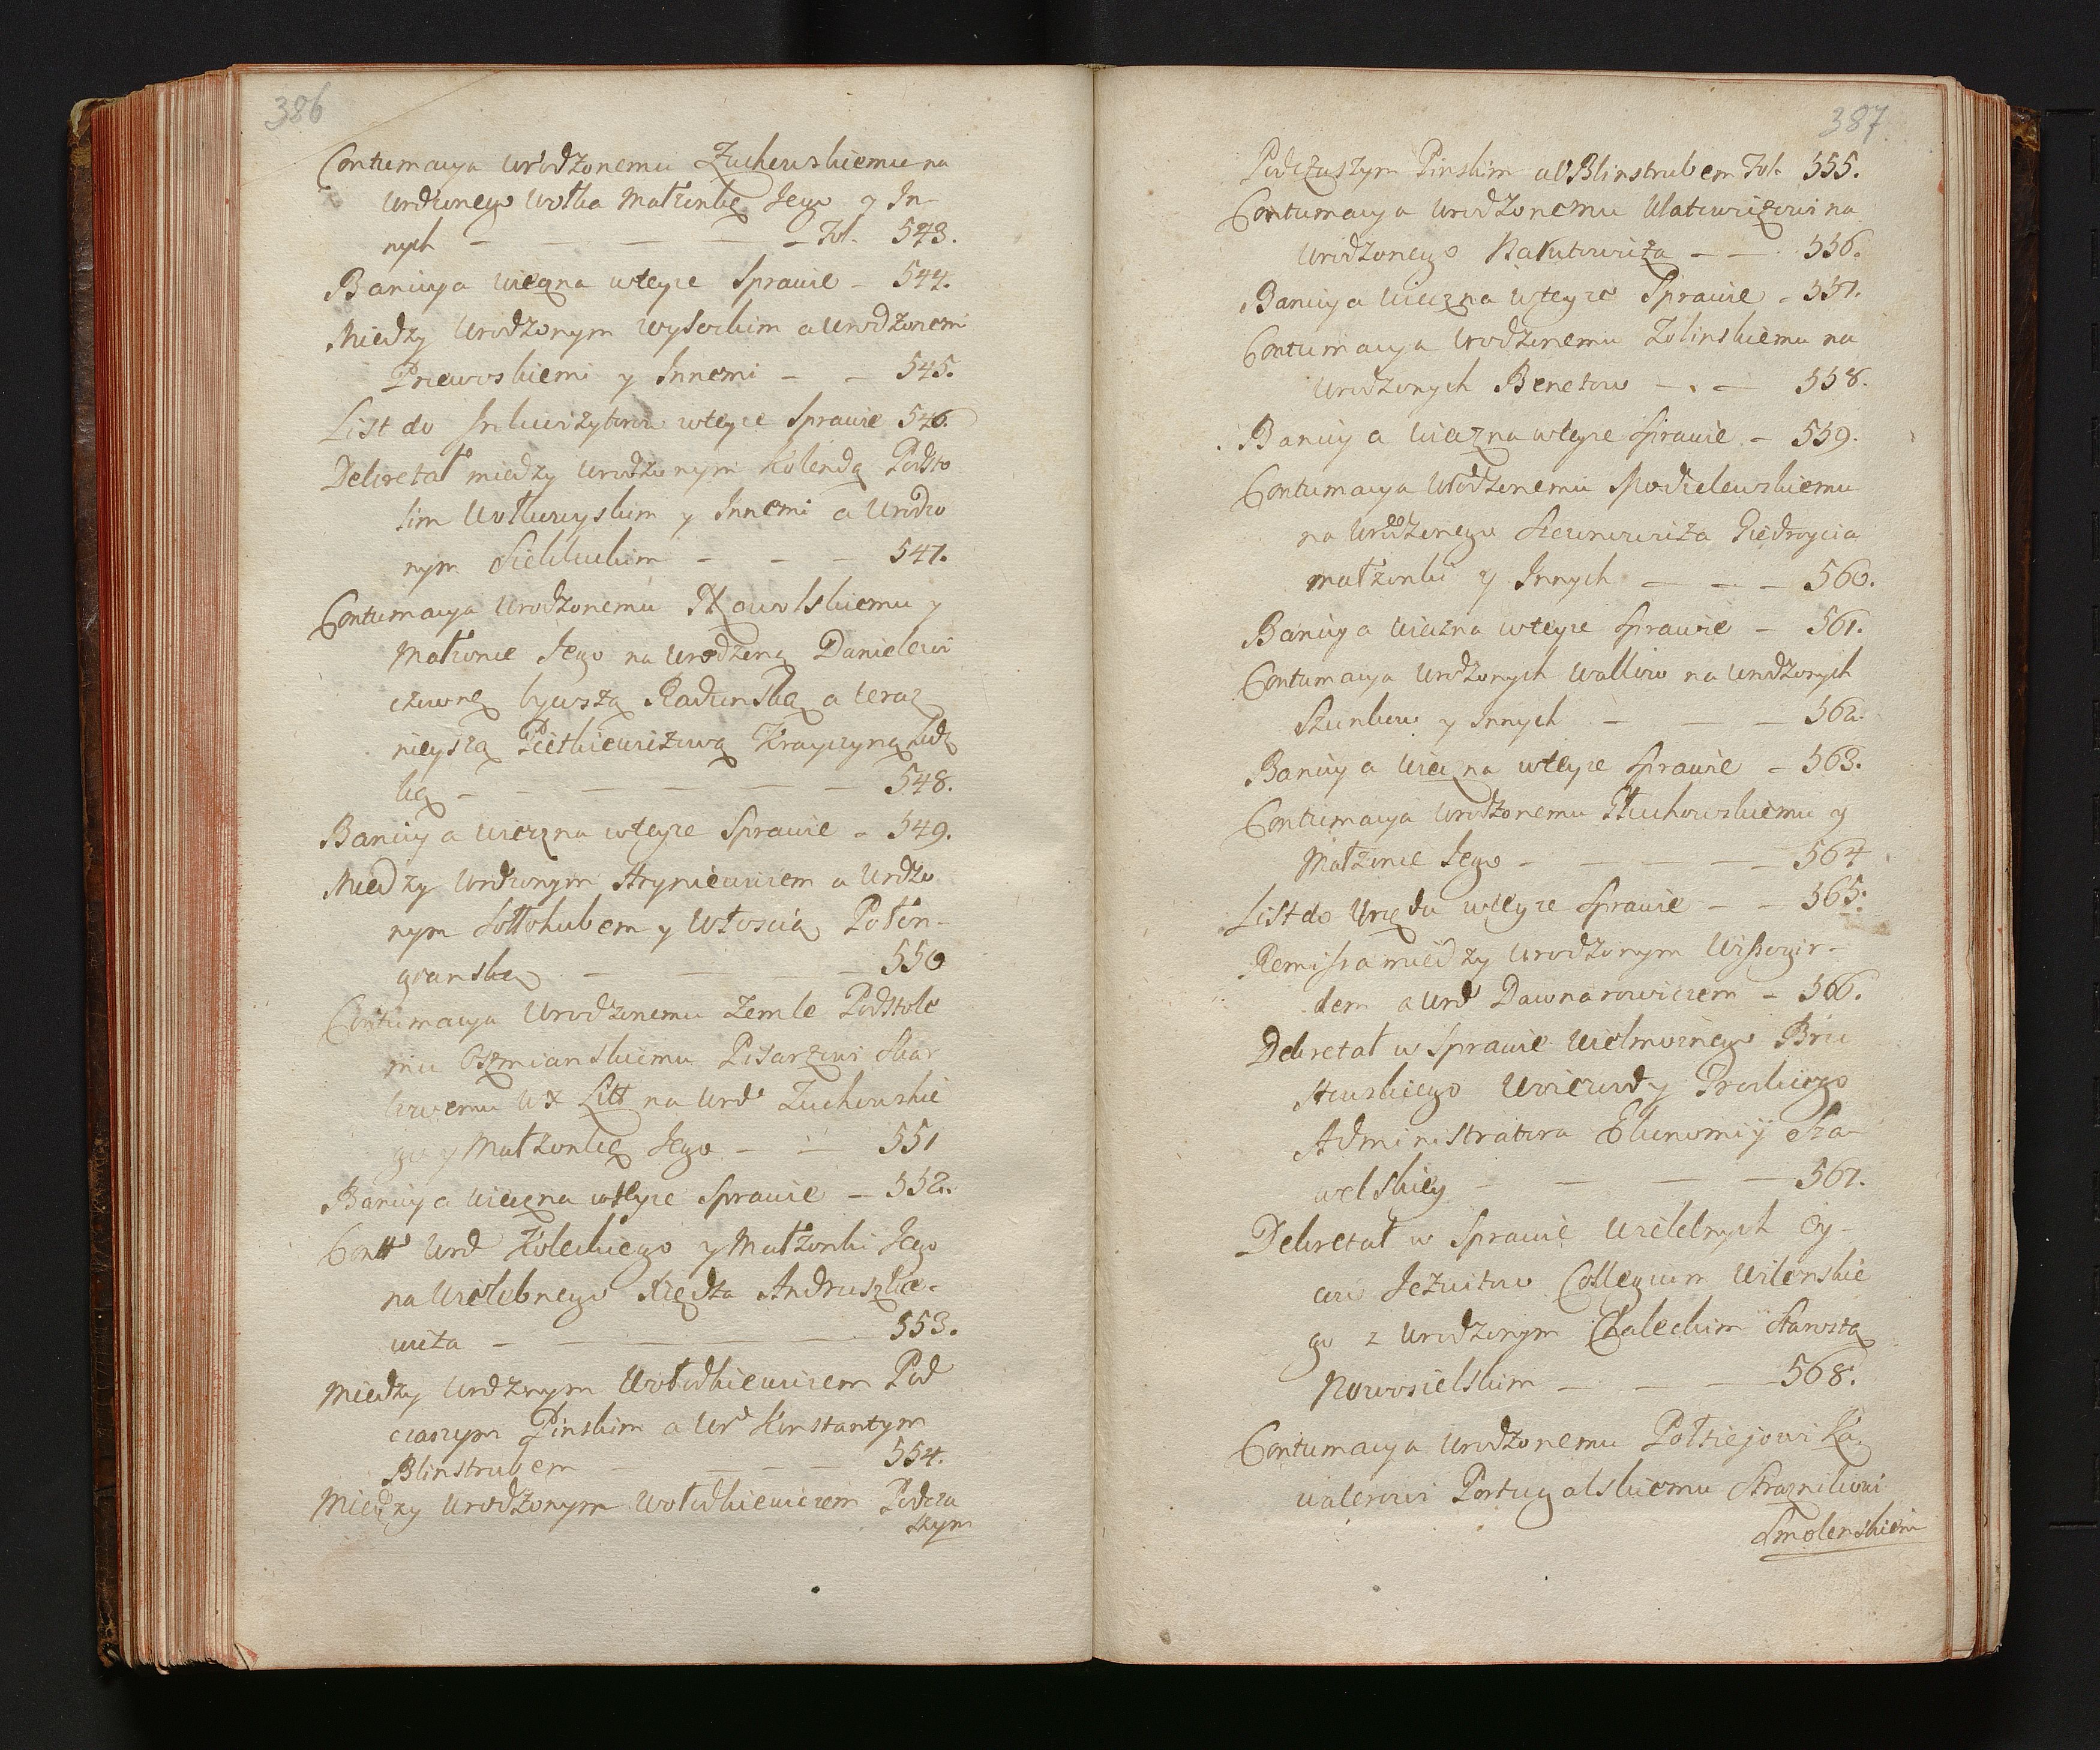 386
Contumacya Urodzonemu Zuchowskiemu na
Urdzonego Wołka Małzonkę Jego y In-
nych — — — — Fol. 543.
Banicya wieczna wteyze Sprawie — 544.
Miedzy Urodzonym Wysockim a Urodzonemi
Przewoskiemi y Innemi — — 545.
List do Inkwizytorow wteyze Sprawie 546.
Dekretał miedzy Urodzonym Kolendą Podsto
lim Wołkowyskim y Innemi a Urodzo
nym — — — 547.
Contumacya Urodzonemu y
Małzonce Jego na Urodzoną Danielewi
czowną bywszą Raduńską a teraz
nieyszą Pietkiewiczową Krayczyną Lidz
ką — — — — — — 548.
Banicya wieczna wteyze Sprawie — 549.
Miedzy Urdzonym Hryniewiczem a Urdzo
nym Sołłohubem y Włoscią Połon-
— — — 550
Contumacya Urodzonemu Zemle Podstole
mu Oszmianskiemu Pisarzowi Skar
bowemu WX Litt na Urd Zuchowskie
go y Małzonkę Jego — — 551
Banicya wieczna wteyze Sprawie — 552.
Contt Urd Koleckiego y Małzonki Jego
na Wielebnego Xiędza Andruszkie-
wicza — — — — 553.
Miedzy Urdznym Wołodkiewiczem Pod
czaszym Pinskim a Urd Konstantym
Blinstrubem — — — — 554.
Miedzy Urodzonym Wołodkiewiczem Podcza
szym
387
Podczaszym Pinskim a U Blinstrubem Fol. 555.
Contumacya Urodzonemu Ulatowiczowi na
Urodzonego Narutowicza — — 556.
Banicya wieczna wteyze Sprawie — 557.
Contumacya Urodzonemu Zolinskiemu na
Urodzonych Benetow — . — 558.
Banicya wieczna wteyze Sprawie — 559.
Contumacya Urodzonemu Modzelewskiemu
na Urodzonego Giedroycia
małzonki y Innych — — — 560.
Banicya wieczna wteyze Sprawie — 561.
Contumacya Urodzonych Wallow na Urodzonych
Szunkow y Innych — — — 562.
Banicya wieczna wteyze Sprawie — 563.
Contumacya Urodzonemu Głuchowskiemu y
Małzonce Jego — — — — 564
List do Urzędu wteyze Sprawie — — 565.
Remissa miedzy Urodzonym Wissogir-
dem a Urd Dawnarowiczem — 566.
Dekretał w Sprawie Wielmoznego Brzo
stowskiego Woiewody Trockiego
Administratora Ekonomiy Sza-
welskiey — — — — 567.
Dekretał w Sprawie Wielebnych Oy-
cow Jezuitow Collegium Wilenskie
go z Urodzonym Chaleckim Starostą
Nowosielskim — — — 568.
Contumacya Urodzonemu Połziejowi Ka-
walerowi Portugalskiemu Straznikowi
Smolenskiem